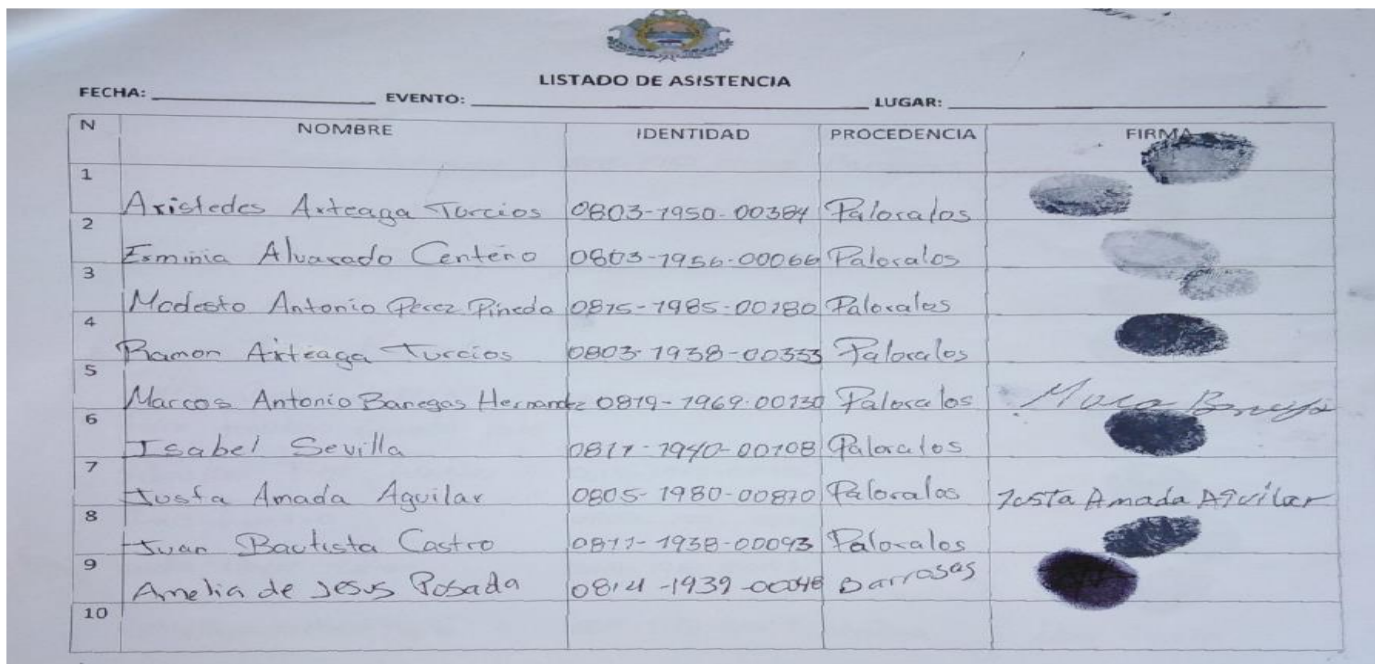 LISTADO DE ASISTENCIA
FECHA: EVENTO: LUGAR:
N NOMBRE IDENTIDAD PROCEDENCIA FIRMA
1 Aristedes Arteaga Turcios 0803-1950-00384 Paloralos
2 Erminia Alvarado Centeno 0803-1956-00066 Paloralos
3 Modesto Antonio Perez Pinedo 0815-1985-00180 Paloralos
4 Ramon Arteaga Turcios 0803-1938-00333 Paloralos
5 Marcos Antonio Banegas Hernandz 0819-1969-00130 Paloralos
6 Isabel Sevilla 0811-1940-00108 Paloralos
7 Justa Amada Aguilar 0805-1980-00870 Paloralos Justa Amada Aguilar
8 Juan Bautista Castro 0811-1938-00093 Paloralos
9 Amelia de Jesus Posada 0814-1939-00048 Barrosas
10